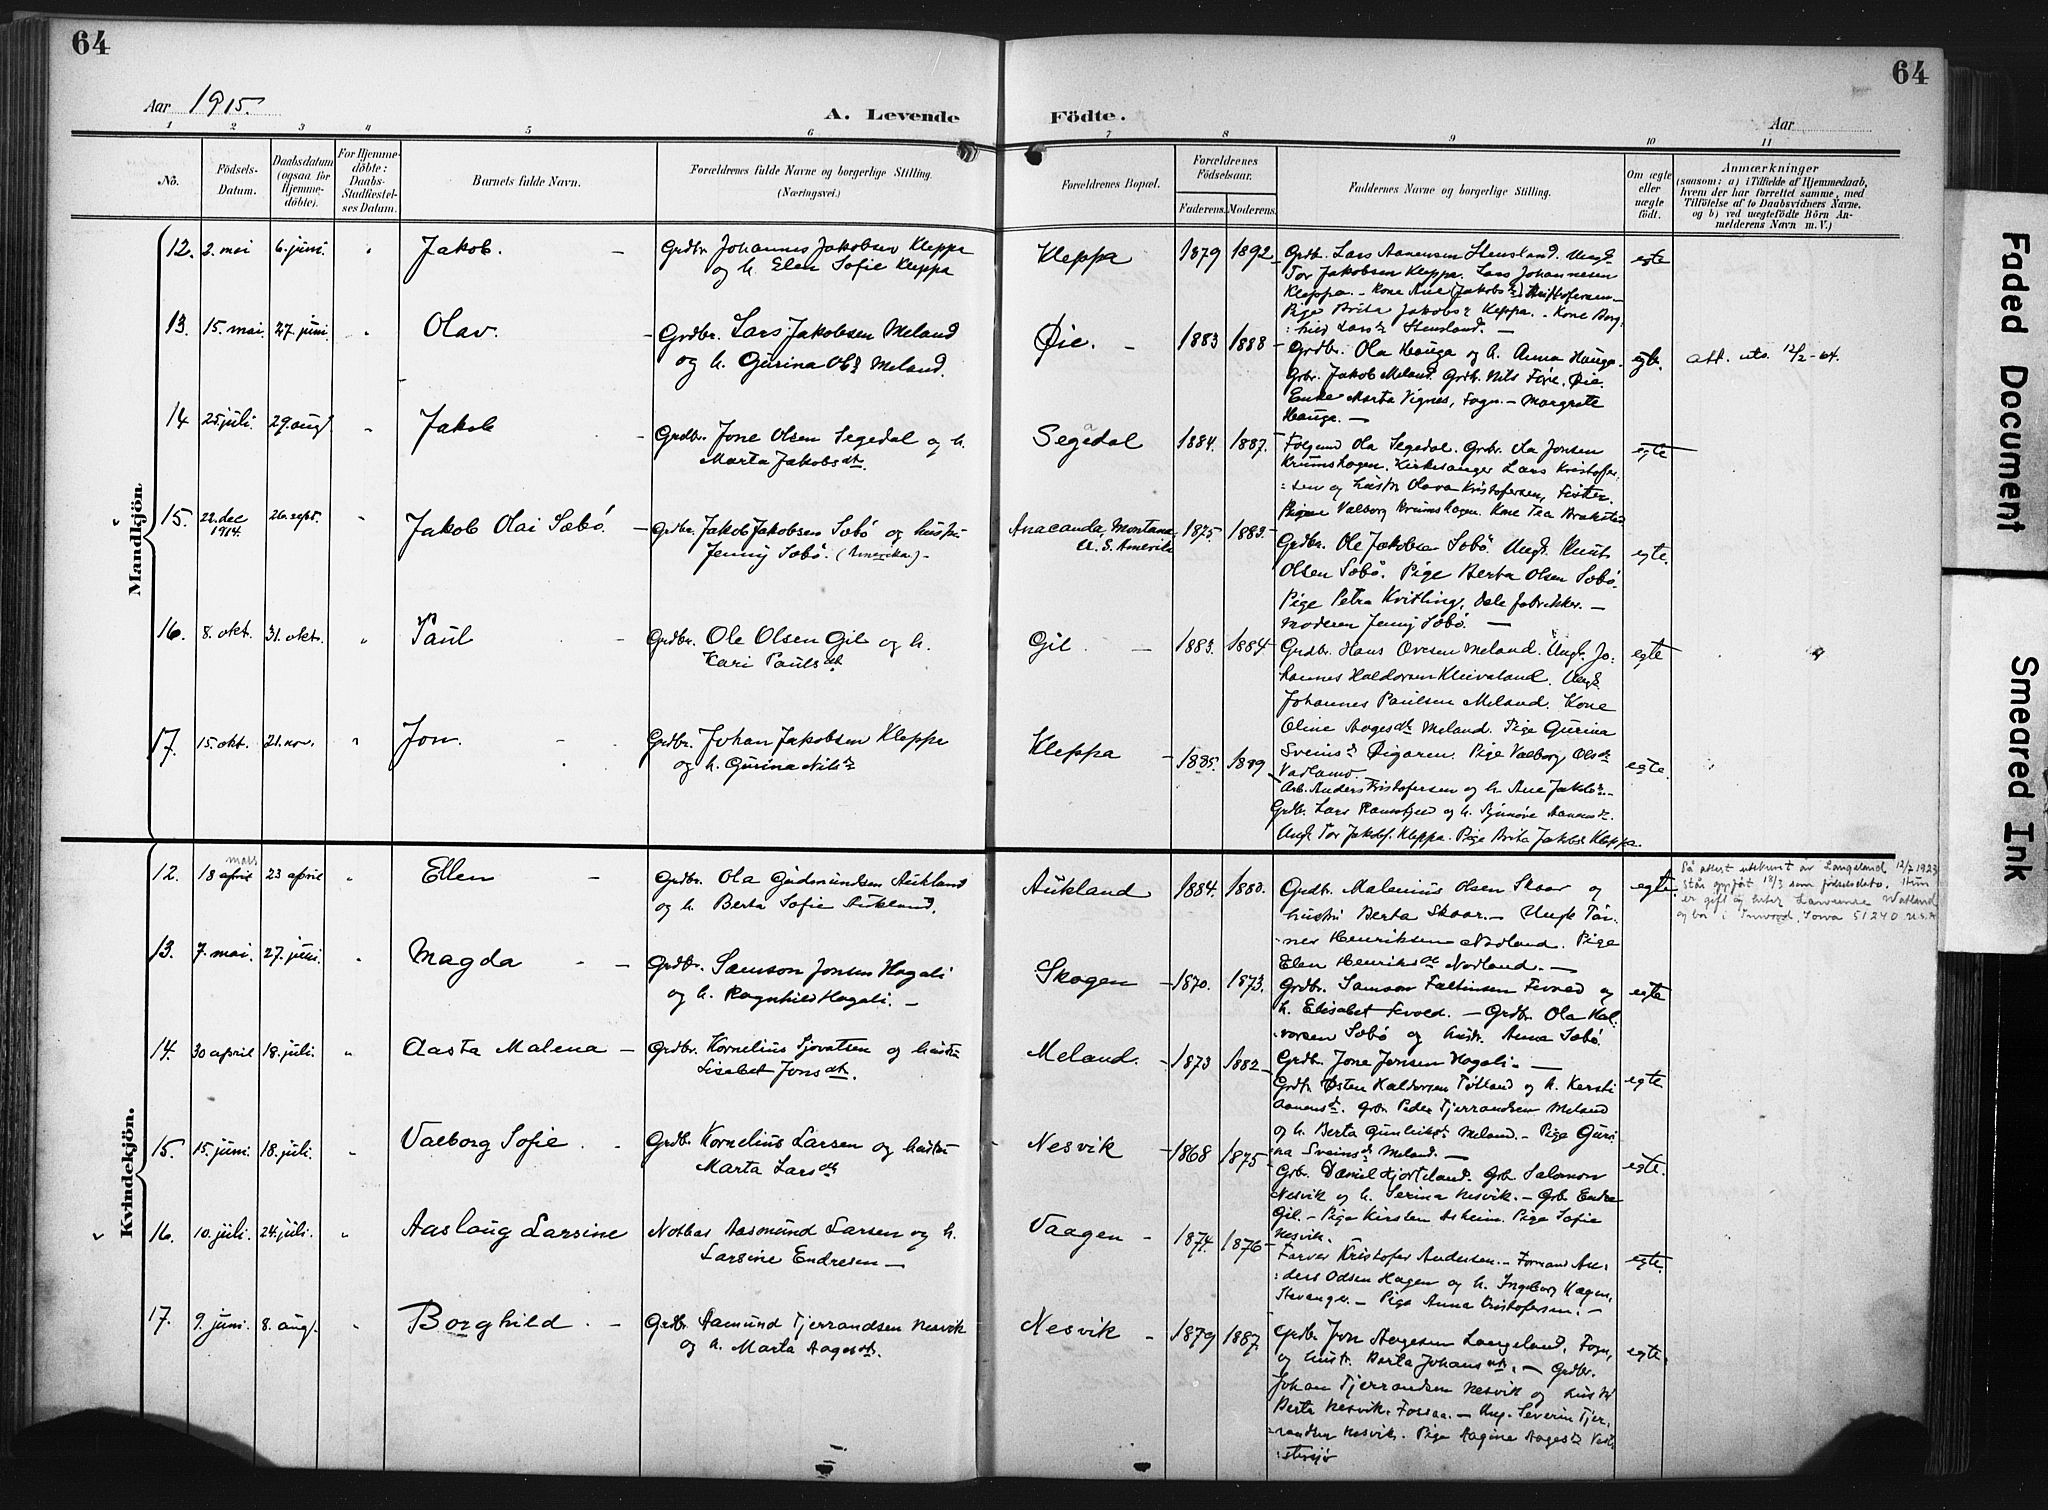 64
64
Aar 1915.
A. Levende Födte.
Aar
1 2 3 4 5 6 7 8 9 10 11
No.
Födsels-Datum.
Daabsdatum (ogsaa for Hjemmedöbte).
For Hjemmedöbte: Daabs-Stadfæstelses Datum.
Barnets fulde Navn.
Forældrenes fulde Navne og borgerlige Stilling.
(Næringsvei.)
Forældrenes Bopæl.
Forældrenes Födselsaar.
Faderens. Moderens.
Faddernes Navne og borgerlige Stilling.
Om ægte eller uægte födt.
Anmærkninger
(saasom: a) i Tilfælde af Hjemmedaab, hvem der har forrettet samme, med Tilföielse af to Daabsvidners Navne. og b) ved uægtefödte Börn Anmelderens Navn m. V.)
Mandkjön.
12. 2. mai 6. juni. " Jakob. –
Grdbr. Johannes Jakobsen Kleppa
og h. Elen Sofie Kleppa
Kleppa 1879 1892
Grdbr. Lars Aanensen Stensland. Ungk.
Tor Jakobsen Kleppa. Lars Johannesen
Kleppa. – Kone Ane (Jakobsdr) Kristofersen –
Pige Brita Jakobsdr Kleppa. – Kone Borg-
hild Larsdr Stensland. –
egte
13. 15. mai. 27. juni. " Olav. –
Grdbr. Lars Jakobsen Meland
og h. Gurina Olsdr Meland.
Øie. – 1883 1888
Grdbr. Ola Hauga og h. Anna Hauga.
Grbr. Jakob Meland. Grdbr. Nils Føie, Øie.
Enke Marta Vignes, Fogn. – Margrete
Hauge. –
egte. att. uts. 12/2-64.
14 25. juli. 29. aug. " Jakob –
Grdbr. Jone Olsen Segedal og h.
Marta Jakobsdt.
Segedal 1884. 1887.
Følgmd Ola Segedal. Grdbr. Ola Jonsen
Krumshagen. Kirkesanger Lars Kristofer-
sen og hustr Olava Kristofersen, Fister.
Pige Valborg Krumshagen. Kone Tea Brakstad
egte
15. 22. dec 1914. 26. sept. " Jakob Olai Sæbö. –
Grdbr. Jakob Jakobsen Sæbö og hustru
Jenny Sæbö. (Amerika.) –
Anaconda, Montana, U. S. Amerika 1875 1883.
Grdbr. Ole Jakobsen Sæbö. Ungk. Knut
Olsen Sæbö. Pige Berta Olsen Sæbö.
Pige Petra Kvitling, Dale fabrikker. –
Moderen Jenny Sæbö. –
egte.
16. 8. okt. 31. okt. " Paul –
Grdbr. Ole Olsen Gil og h.
Kari Paulsdt.
Gil – 1883. 1884
Grdbr. Hans Ovesen Meland. Ungk. Jo-
hannes Haldorsen Kleivaland. Ungk.
Johannes Paulsen Meland. Kone
Oline Aagesdt Meland. Pige Gurina
Sveinsdt Øigaren. Pige Valborg Olsdt
Vadlamo.
egte
17. 15. okt. 21. nov. " Jon. –
Grdbr. Johan Jakobsen Kleppa
og h. Gurina Nilsdr
Kleppa – 1885. 1889
Arb. Anders Kristofersen og h. Ane Jakobsdr. –
Grdbr. Lars Ramsfjeld og h. Aanensdr.
Ungk. Tor Jakobs. Kleppa. Pige Brita Jakobsdr Kleppa.
egte.
Kvindekjön.
12. mars 18 april 23 april " Ellen –
Grdbr. Ola Gudmundsen Aukland
og h. Berta Sofie Aukland.
Aukland 1884. 1880.
Grdbr. Malenius Olsen Skaar og
hustru Berta Skaar. – Ungk. Tön-
nes Henriksen Nodland. Pige
Elen Henriksdt Nodland. –
egte.
Så attest utskrevet av Langeland 12/7 1923
står oppført 18/3 som fødselsdato. Hun
er gift og heter Watland
og bor i Inwood, Iowa 51240 U.S.A
13. 7. mai. 27. juni. " Magda –
Grdbr. Samson Jonsen Hagali
og h. Ragnhild Hagali. –
Skogen – 1870. 1873.
Grdbr. Samson Faltinsen og
h. Elisabet. – Grdbr Ola Hal-
vorsen Sæbö og hustr. Anna Sæbö.
Grdbr. Jone Jonsen Hagali. –
egte
14. 30 april 18. juli. " Aasta Malena –
Grdbr. Kornelius Sjovatsen og hustru
Lisabet Jonsdt.
Meland. – 1873 1882
Grdbr. Østen Haldorsen Tøtland og h. Kersti
Aanensdt. Grbr. Peder Tjerrandsen Meland
og h. Berta Gunleiksdt Meland. – Pige Guri-
na Sveinsdt Meland. –
egte
15. 15. juni. 18. juli. " Valborg Sofie. –
Grdbr. Kornelius Larsen og hustru
Marta Larsdt
Nesvik – 1868 1875
Grbr. Daniel Hjorteland. Grbr Salomon
Nesvik og h. Serina Nesvik. – Grbr. Endre
Gil. – Pige Kirsten Asheim. Pige Sofie
Nesvik.
egte.
16. 10. juli. 24. juli. " Aaslaug Larsine
Notbas Aasmund Larsen og h.
Larsine Endresen –
Vaagen – 1874. 1876
Farver Kristofer Andersen. – Formand An-
ders Odsen Hagen og h. Ingeborg Hagen,
Stavanger. – Pige Anna Kristofersen. –
egte.
17. 9. juni. 8. aug. " Borghild. –
Grdbr. Aamund Tjerrandsen Nesvik
og h. Marta Aagesdt.
Nesvik – 1879 1887.
Grdbr Jon Aagesen Langeland, Fogn,
og hustr. Berta Johansdt. – Grdbr.
Johan Tjerrandsen Nesvik og hustr
Berta Nesvik, Fossaa. – Ung. Severin Tjer-
randsen Nesvik. Pige Aagine Aagesdt
egte.
Faded Document
Smeared Ink